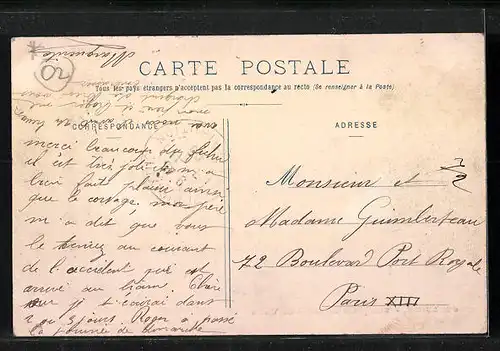 Marguerite
20
CARTE POSTALE
Tous les pays étrangers n'acceptent pas la correspondance au recto (Se renseigner à la Poste)
CORRESPONDANCE
ADRESSE
merci beaucoup du fichu
il est très joli et m'a
bien fait plaisir ainsi
que le corsage mon père
m a dit que vous
le teniez au courant
de l'accident qui est
arrivé au train. Claire
j t'écrirai dans
2 ou 3 jours. Roger a passé
la journée de dimanche
Monsieur et
Madame Guimberteau
72 Boulevard Port Royale
Paris XIII